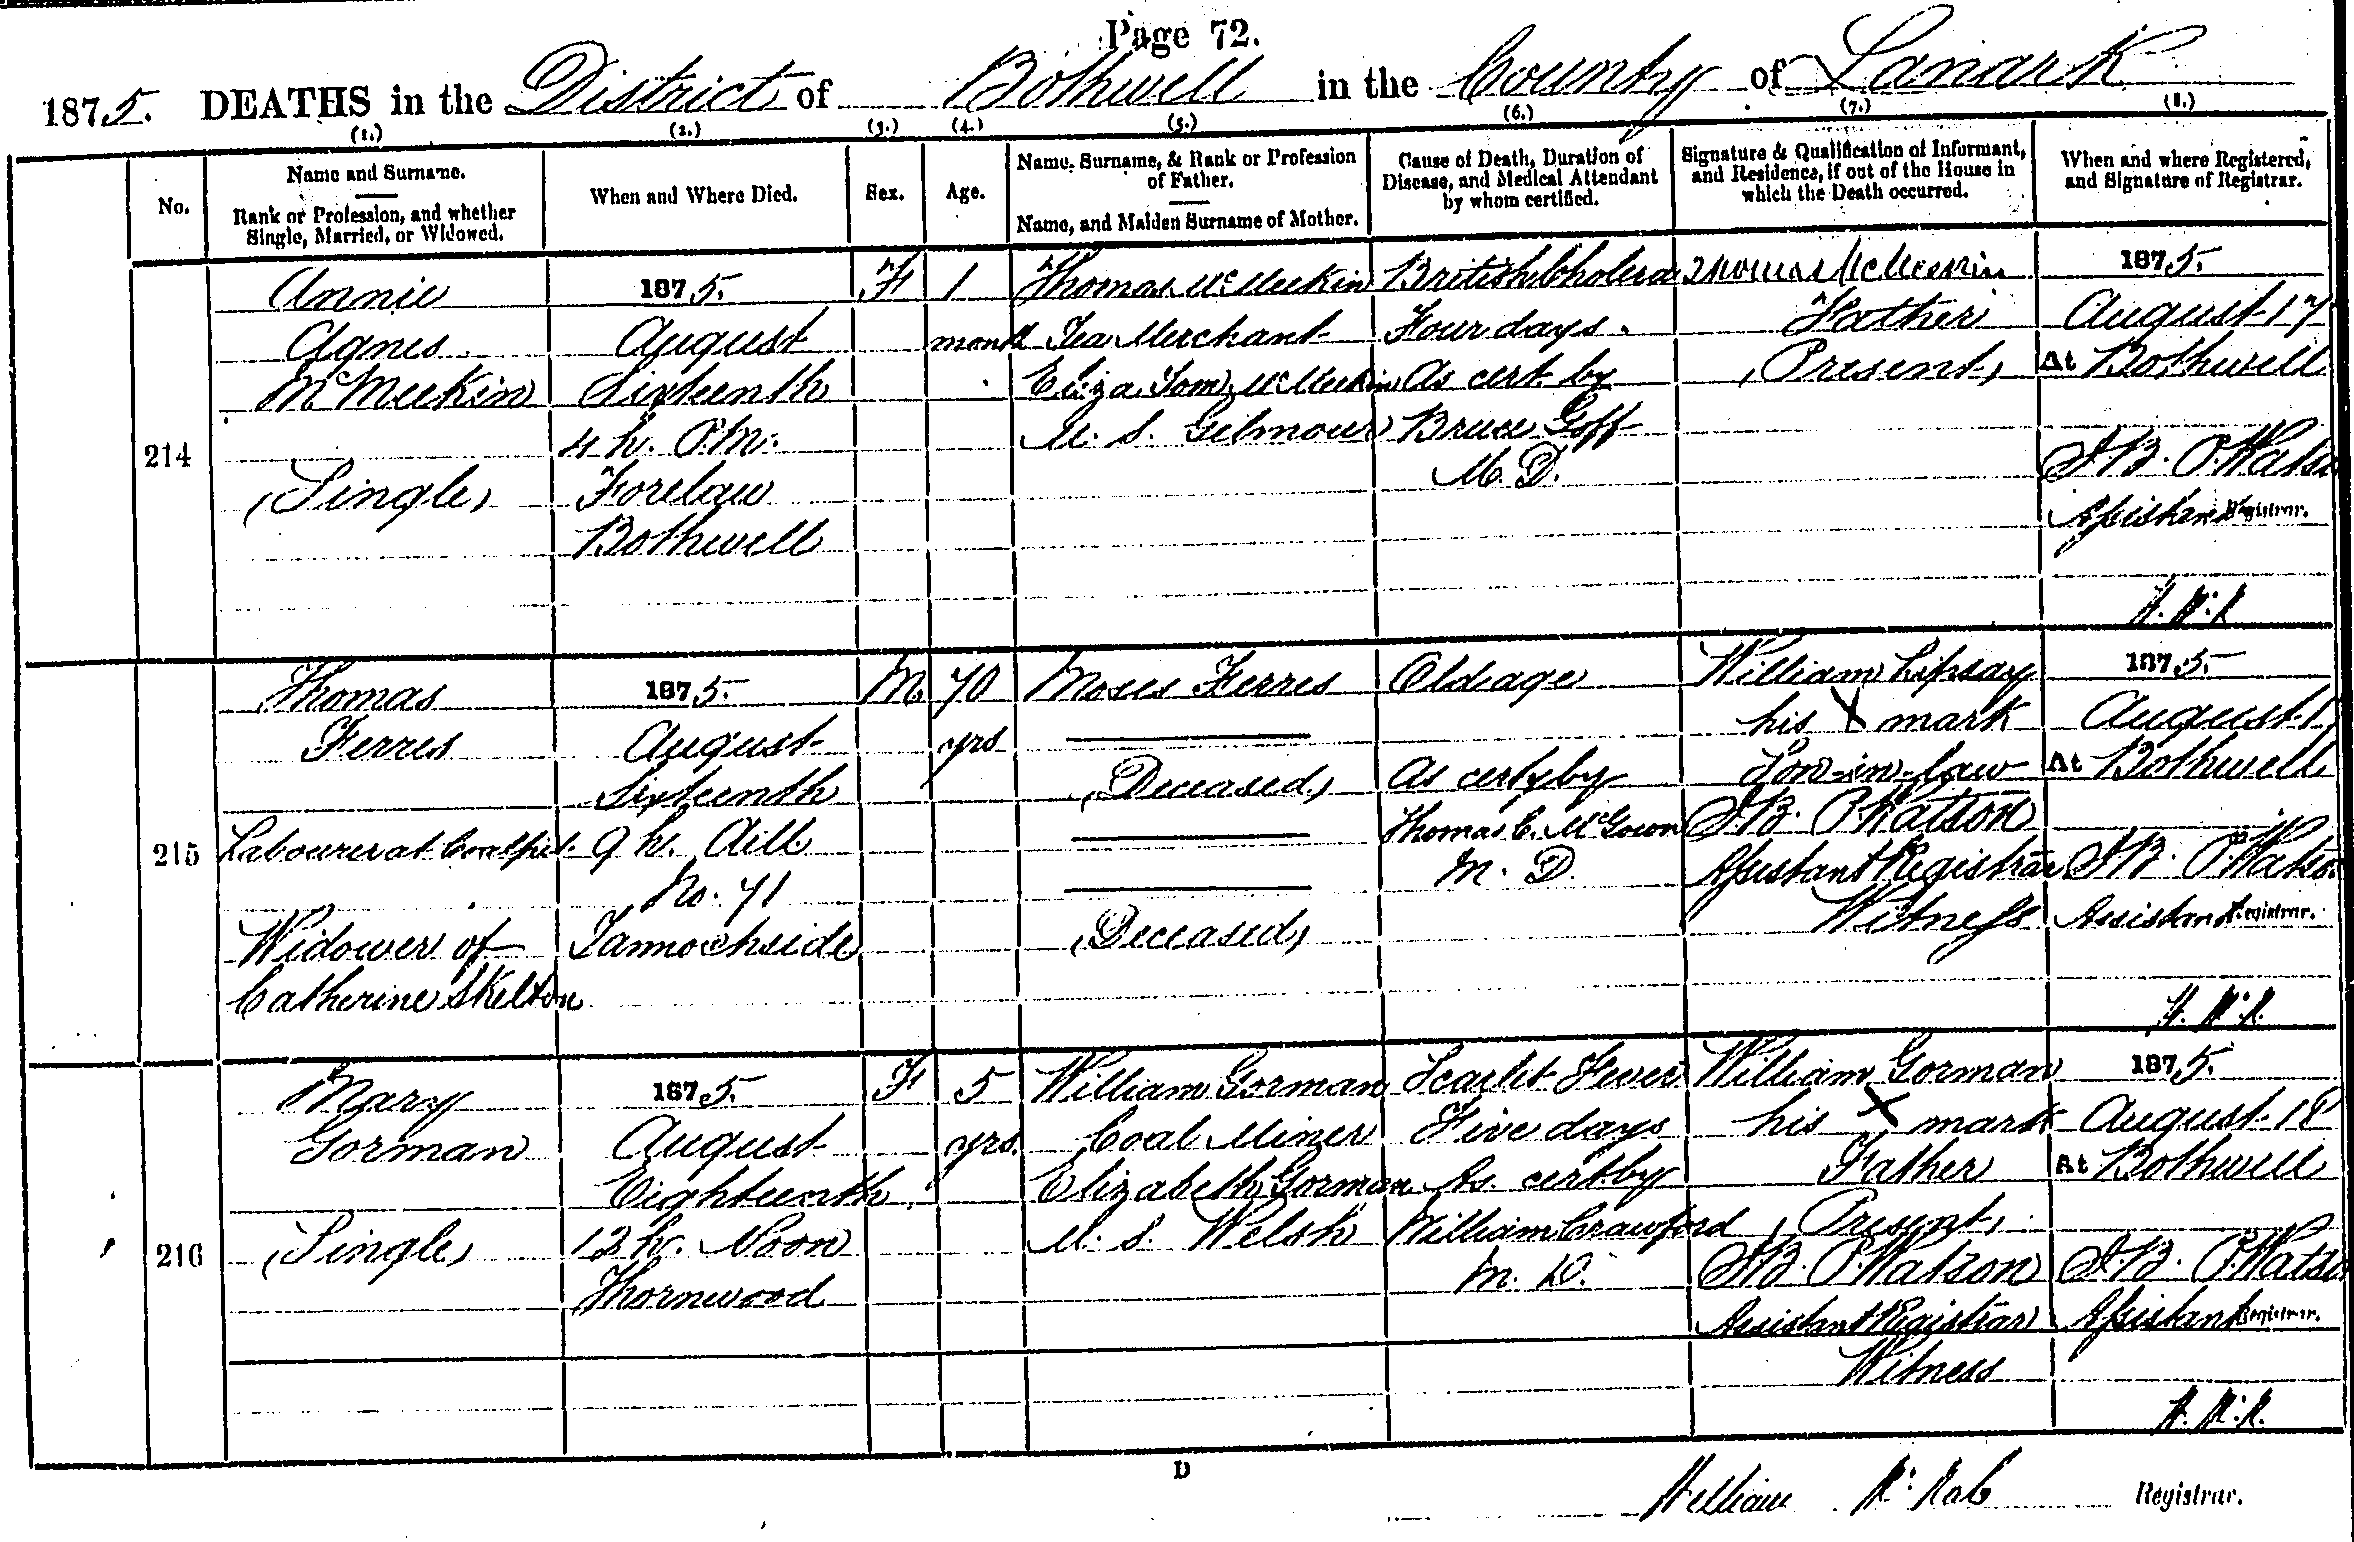 Page 72.
1875. DEATHS in the District of Bothwell in the County of Lanark
(1.) (2.) (3.) (4.) (5.) (6.) (7.) (8.)
No.
Name and Surname.
Rank or Profession, and whether
Single, Married, or Widowed.
When and Where Died.
Sex.
Age.
Name, Surname, & Rank or Profession
of Father.
Name, and Maiden Surname of Mother.
Cause of Death, Duration of
Disease, and Medical Attendant
by whom certified.
Signature & Qualification of Informant,
and Residence, if out of the House in
which the Death occurred.
When and where Registered,
and Signature of Registrar.
214
Annie
Agnes
McMeekin
(Single)
1875.
August
Sixteenth
4 h. P.M.
Forelaw
Bothwell
F
1
month
Thomas McMeekin
Tea Merchant
Eliza McMeekin
M. S. Gilmour
British Cholera
Four days.
As cert by
Bruce Goff
M. D.
Thomas McMeekin
Father
(Present)
1875.
August 17
At Bothwell
P. Watso
Assistant Registrar.
215
Thomas
Ferres
Labourer at Coalpit
Widower of
Catherine Skelton
1875.
August
Sixteenth
9 h. A.M.
No. 71
Tannochside
M
70
yrs
Moses Ferres
(Deceased)
(Deceased)
Old age
As cert by
Thomas C. McGown
M. D.
William Lipsay
his X mark
Son-in-law
P. Watson
Assistant Registrar
Witness
1875
August 1
At Bothwell
P. Watso
Assistant Registrar.
216
Mary
Gorman
(Single)
1875.
August
Eighteenth
12 h. Noon
Thornwood
F
5
yrs.
William Gorman
Coal Miner
Elizabeth Gorman
M. S. Welsh
Scarlet Fever
Five days
As cert by
William Crawford
M. D.
William Gorman
his X mark
Father
(Present)
P. Watson
Assistant Registrar
Witness
1875.
August 18
At Bothwell
P. Watso
Assistant Registrar.
D
William Registrar.